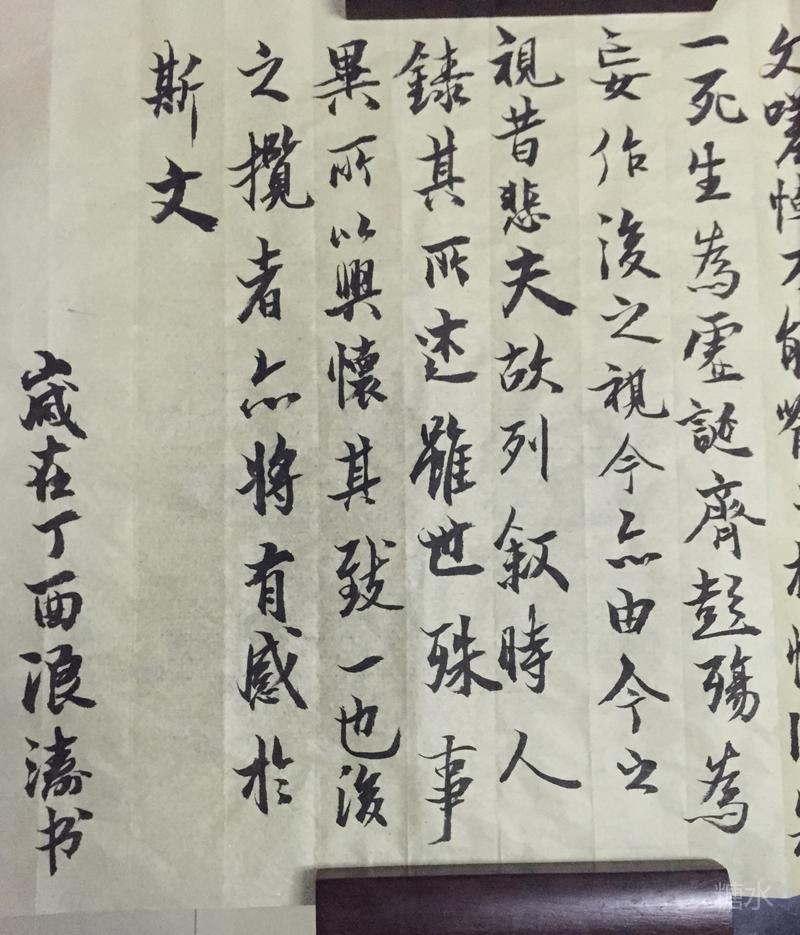 文嗟悼不能喻
一死生為虛誕齊彭殤為
妄作後之視今亦由今之
視昔悲夫故列叙時人
録其所述雖世殊事
異所以興懷其致一也後
之攬者亦將有感於
斯文
歲在丁酉浪濤书
糖水